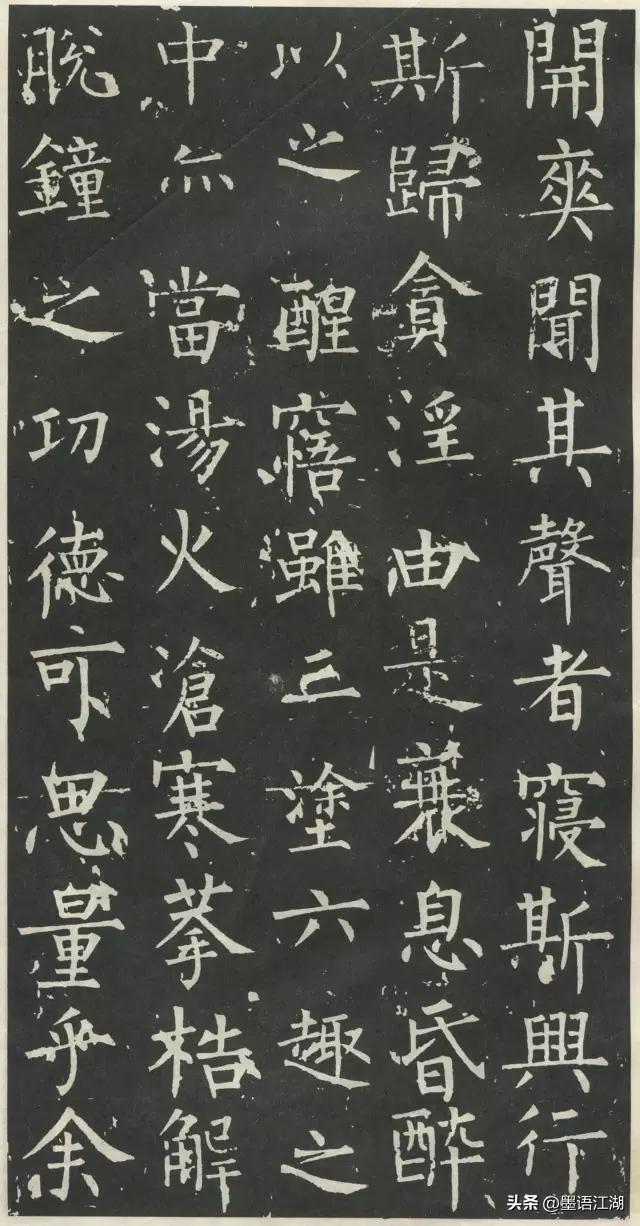 開爽聞其聲者寝斯興行
斯歸貪淫由是衰息昏酔
以之醒寤雖三塗六趣之
中亦當湯火滄寒拲梏解
脫鐘之功德可思量乎余
头条 @墨语江湖